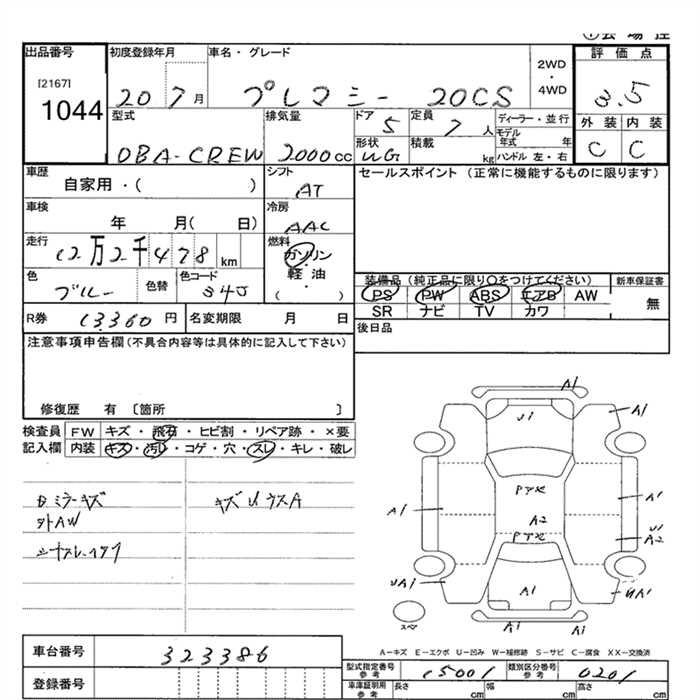 出品番号 初度登録年月 車名・グレード 2WD・4WD 評価点
[2167]
1044
20 7月 プレマシー 20CS 3.5
型式 排気量 ドア 定員 ディーラー・並行 外装 内装
DBA-CREW 2000cc 5 7人 モデル年式 年 C C
形状 積載 kg ハンドル 左・右
WG
車歴 シフト セールスポイント (正常に機能するものに限ります)
自家用・( ) AT
車検 冷房
年 月( 日) AAC
走行 燃料
12万2千478km ガソリン・軽油・( )
色 色替 色コード
ブルー 34J
装備品 (純正品に限り○をつけてください) 新車保証書
PS PW ABS エアB AW 無
SR ナビ TV カワ
R券 13,360円 名変期限 月 日 後日品
注意事項申告欄(不具合内容等は具体的に記入して下さい)
修復歴 有 〔箇所 〕
検査員 FW キズ・飛石・ヒビ割・リペア跡・×要
記入欄 内装 キズ・汚れ・コゲ・穴・スレ・キレ・破レ
ミラーキズ キズ
外AW
A1
A1
A1
A1
A2
A2
A1
UA1
A1
A1
A-キズ E-エクボ U-凹み W-補修跡 S-サビ C-腐食 XX-交換済
車台番号 323386
登録番号
型式指定番号 参考 15001 類別区分番号 参考 0201
車庫証明用 参考 長さ 幅 高さ